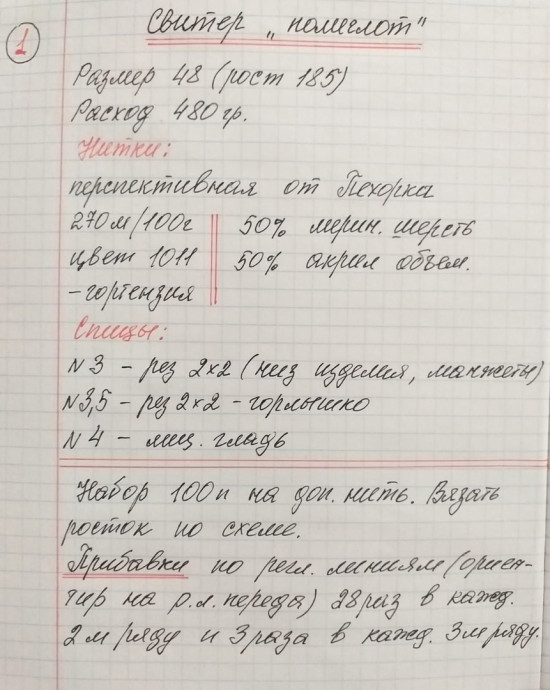 1
Свитер „полислот"
Размер 48 (рост 185)
Расход 480 гр.
Нитки:
перспективная от Пехорка
270 м/100г 50% мерин. шерсть
цвет 1011 50% акрил объем.
- гортензия
Спицы:
N 3 - рез 2х2 (низ изделия, манжеты)
N3,5 - рез 2х2 - горлышко
N 4 - лиц. гладь
Набор 100п на доп. нить. Вязать
росток по схеме.
Прибавки по регл. линиям (ориен-
тир на р.л. переда) 28 раз в кажд.
2м ряду и 3 раза в кажд. 3м ряду.